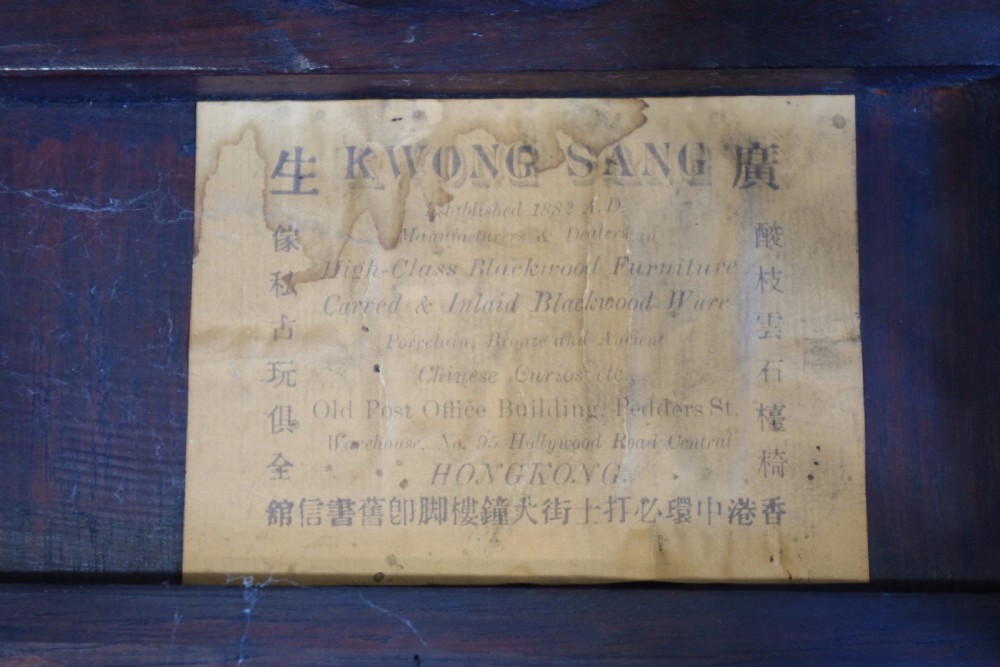 廣 KWONG SANG 生
Established 1882 A.D.
Manufacturers & Dealers in
High-Class Blackwood Furniture
Carved & Inlaid Blackwood Ware
Porcelain, Bronze and Ancient
Chinese Curios etc.
Old Post Office Building, Pedders St.
Warehouse, No. 95 Hollywood Road Central
HONGKONG.
酸枝雲石檯椅
傢私古玩俱全
香港中環必打士街大鐘樓脚卽舊書信館